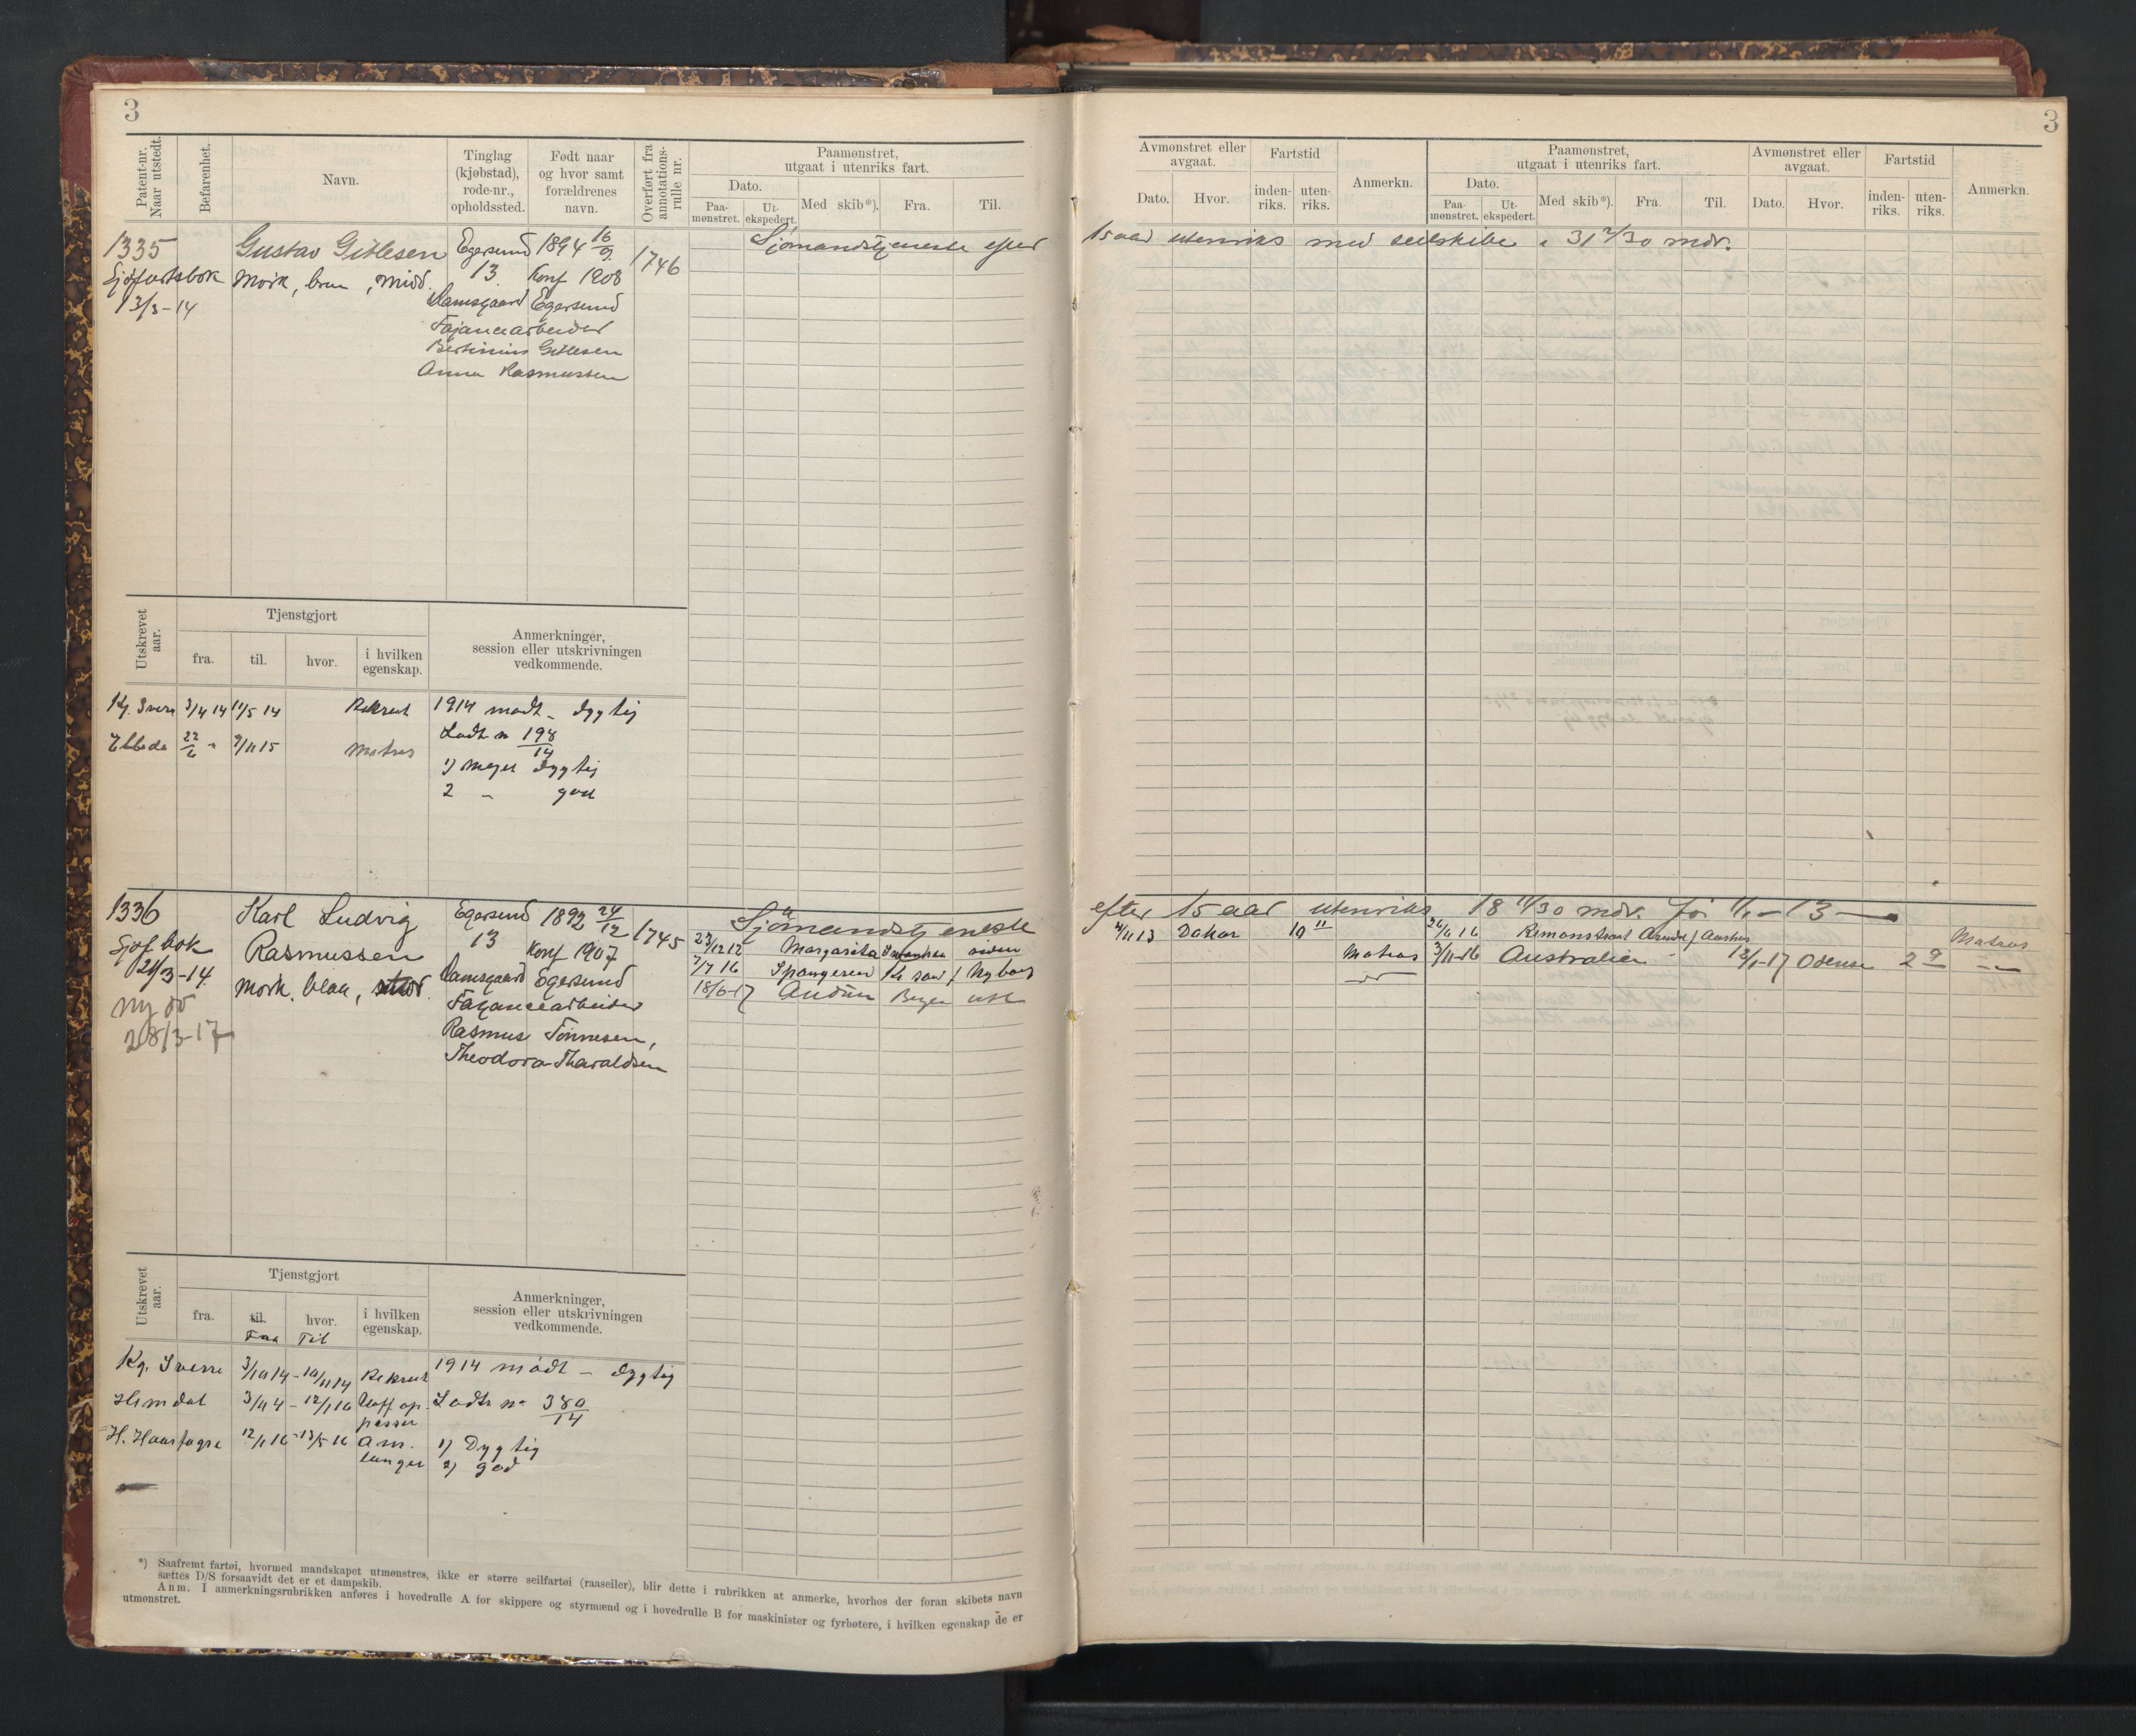 3
Patent-nr. Naar utstedt.
Befarenhet.
Navn.
Tinglag (kjøbstad), rode-nr., opholdssted.
Født naar og hvor samt forældrenes navn.
Overført fra annotations-rulle nr.
Paamønstret, utgaat i utenriks fart.
Dato.
Paa-mønstret.
Ut-ekspedert.
Med skib*).
Fra.
Til.
1335
Sjøfartsbok
13/3-14
Gustav Gitlesen
Mørk, brun, midd.
Egersund
13
Damsgaard
1894 16/9
Konf 1908
Egersund
Fajancearbeider
Bertinius Gitlesen
Anna Rasmussen
1746
Sjømandstjeneste efter
Utskrevet aar.
Tjenstgjort
fra.
til.
hvor.
i hvilken egenskap.
Anmerkninger, session eller utskrivningen vedkommende.
Kg. Sverre 3/4 14 11/5 14 Rekrut
22/6 " 9/11 15 Matros
1914 mødt - dygtig
Lodtn 198/14
1) Meget dygtig
2 " god
1336
Sjøf bok
21/3-14.
28/3-17
Karl Ludvig
Rasmussen
Mørk, blaa,
Egersund
13
Damsgaard
1892 24/12
Konf 1907
Egersund
Fajancearbeider
Rasmus Tønnesen,
Theodora Tharaldsen
1745
Sjømandstjeneste
23/12 12 Margarita
7/7 16 Spangereid Kr sand f Nyborg
18/6-17 Audun Bergen
Utskrevet aar.
Tjenstgjort
fra.
til.
hvor.
i hvilken egenskap.
Fra Til
Anmerkninger, session eller utskrivningen vedkommende.
Kg. Sverre 3/10 14 - 10/11 14 Rekrut
Heimdal 3/11 4 - 12/1 16 Uoff op-passer
H. Haarfagre 12/1 16 - 13/5 16 Am. langer
1914 mødt - dygtig
Lodtn 380/14
1) Dygtig
2) god
*) Saafremt fartøi, hvormed mandskapet utmønstres, ikke er større seilfartøi (raaseiler), blir dette i rubrikken at anmerke, hvorhos der foran skibets navn
sættes D/S forsaavidt det er et dampskib.
Anm. I anmerkningsrubrikken anføres i hovedrulle A for skippere og styrmænd og i hovedrulle B for maskinister og fyrbøtere, i hvilken egenskap de er
utmønstret.
3
Avmønstret eller avgaat.
Dato.
Hvor.
Fartstid
inden-riks.
uten-riks.
Anmerkn.
Paamønstret, utgaat i utenriks fart.
Dato.
Paa-mønstret.
Ut-ekspedert.
Med skib*).
Fra.
Til.
Avmønstret eller avgaat.
Dato.
Hvor.
Fartstid
inden-riks.
uten-riks.
Anmerkn.
15 aar utenriks med seilskibe i 31 2/30 mdr.
efter 15 aar utenriks 18 11/30 mdr. før 1/1-13
4/11 13 Dakar 10 11
Matros
Australien
18/1-17 Odense 2 9
Matros